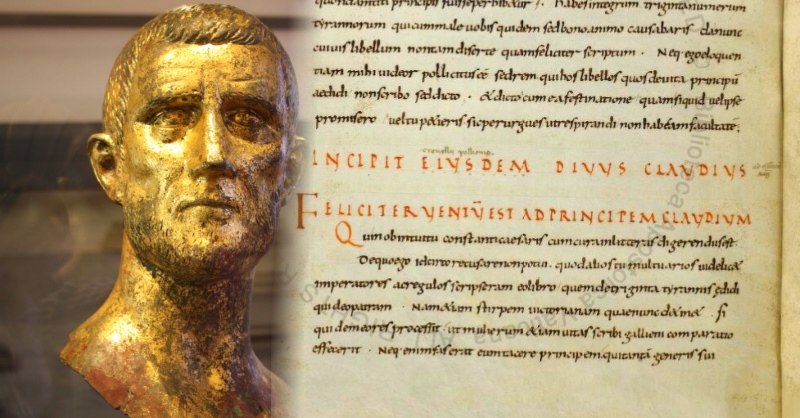 Habes integrum triginta numerum
tyrannorum qui cum male uobis quidem sed bono animo causabaris · da nunc
cuiuis libellum non tam diserte quam feliciter scriptum · Neq ego eloquen
tiam mihi uideor pollicitus eē sed rem qui hos libellos quos de uita principū
aedidi non scribo sed dicto · & dicto cum ea festinatione quam si quid uel ipse
promisero uel tu petieris sic perurgues ut respirandi non habeam facultatē;
INCIPIT EIUSDEM DIVUS CLAUDIUS
FELICITER VENTŪ EST AD PRINCIPEM CLAUDIUM
Quin ob intuitu constanti caesaris cum cura in litteras digerendus est·
De quo ego idcirco recusare non potui· quod alios tumultuarios uidelic&
imperatores ac regulos scripseram eo libro quem de triginta tyrannis edidi
qui cleopatram · Nam &iam stirpem uictorianam quae nunc · Si
quidem eo res processit · ut mulierum &iam uitas scribi gallieni comparatio
effecerit · Neq enim fas erat eum tacere principem qui tantā generis sui
Biblioteca Apostolica Vaticana